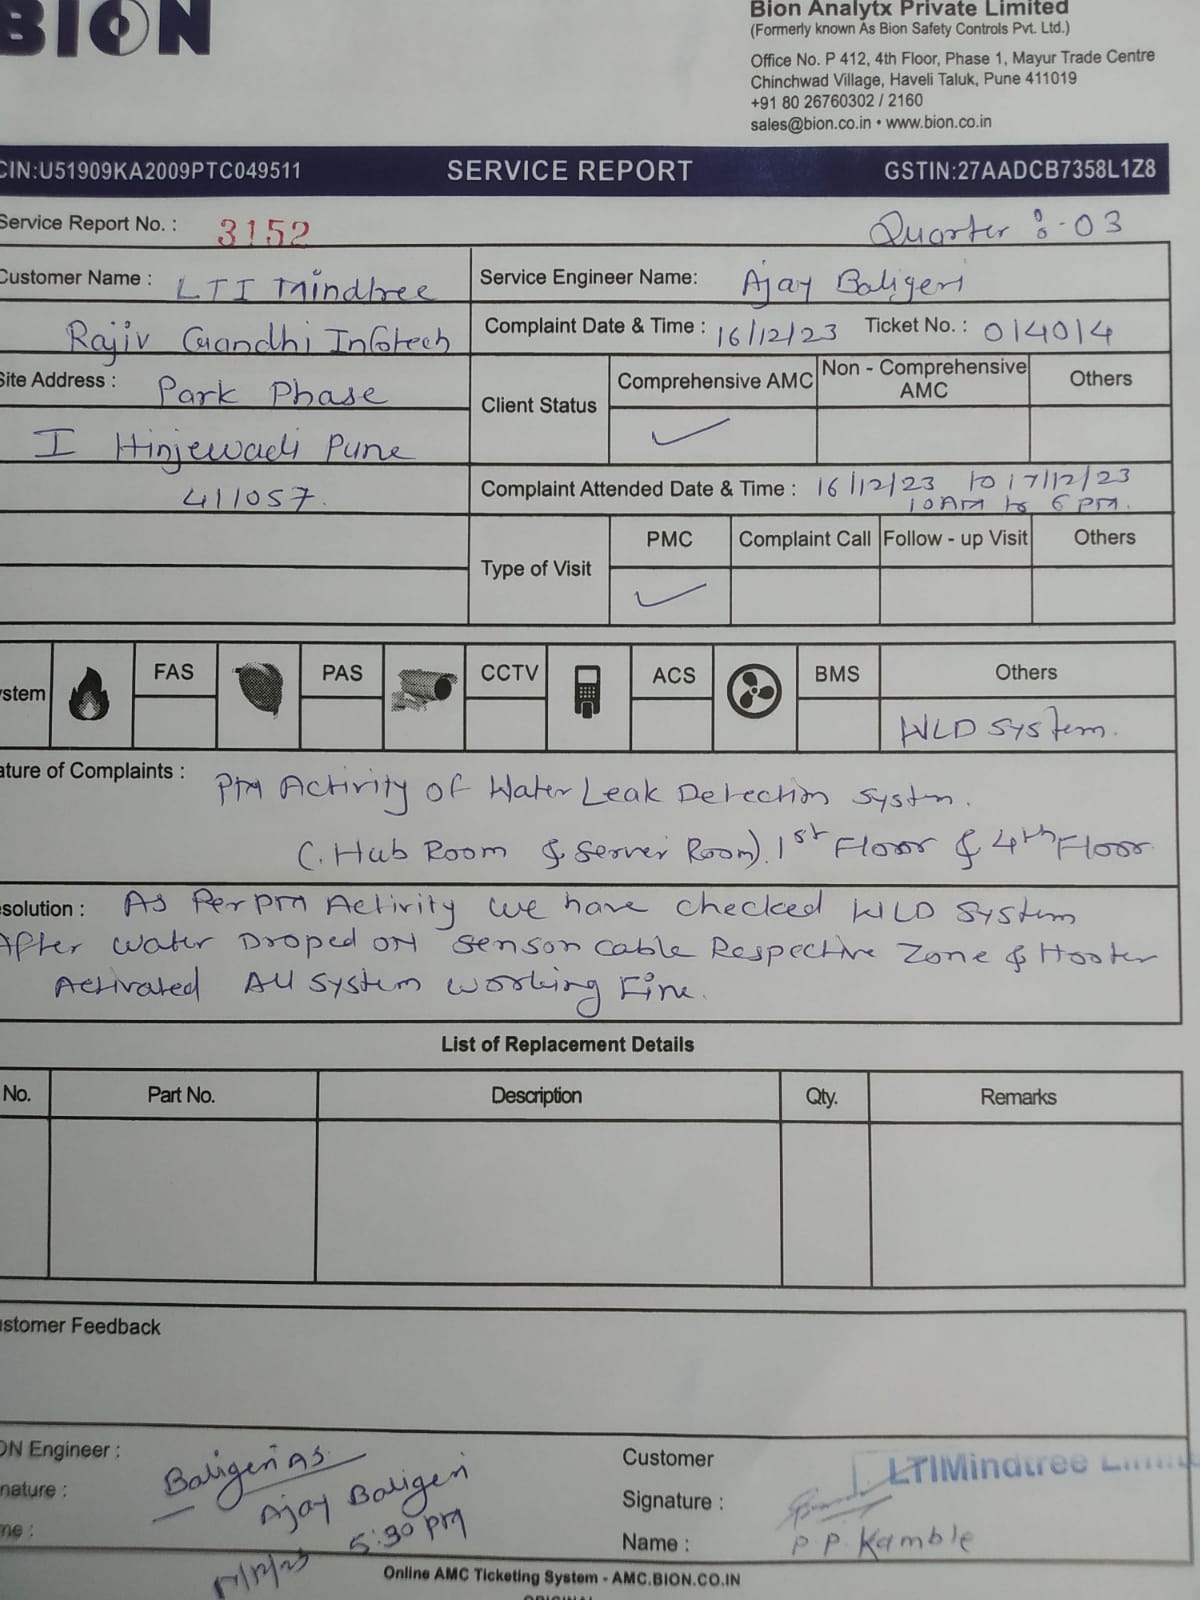 BION
Bion Analytx Private Limited
(Formerly known As Bion Safety Controls Pvt. Ltd.)
Office No. P 412, 4th Floor, Phase 1, Mayur Trade Centre
Chinchwad Village, Haveli Taluk, Pune 411019
+91 80 26760302 / 2160
sales@bion.co.in • www.bion.co.in
CIN:U51909KA2009PTC049511 SERVICE REPORT GSTIN:27AADCB7358L1Z8
Service Report No. : 3152 Quarter :- 03
Customer Name : LTI Mindtree Service Engineer Name: Ajay Baligeri
Rajiv Gandhi Infotech Complaint Date & Time : 16/12/23 Ticket No. : 014014
Site Address : Park Phase Client Status Comprehensive AMC Non - Comprehensive AMC Others
I Hinjewadi Pune ✓
411057. Complaint Attended Date & Time : 16/12/23 to 17/12/23
10AM to 6 PM.
Type of Visit PMC Complaint Call Follow - up Visit Others
✓
ystem FAS PAS CCTV ACS BMS Others
WLD System.
ature of Complaints : PM Activity of Water Leak Detection System.
(. Hub Room & Server Room). 1st Floor & 4th Floor
esolution : As Per PM Activity we have checked WLD System
After water Droped on Sensor cable Respective Zone & Hooter
Activated All System working Fine.
List of Replacement Details
No. Part No. Description Qty. Remarks
ustomer Feedback
ON Engineer : Customer LTIMindtree Limite
nature : Baligeri AS Signature :
me : Ajay Baligeri Name : P. P. Kamble
5:30 PM
17/12/23
Online AMC Ticketing System - AMC.BION.CO.IN
ORIGINAL